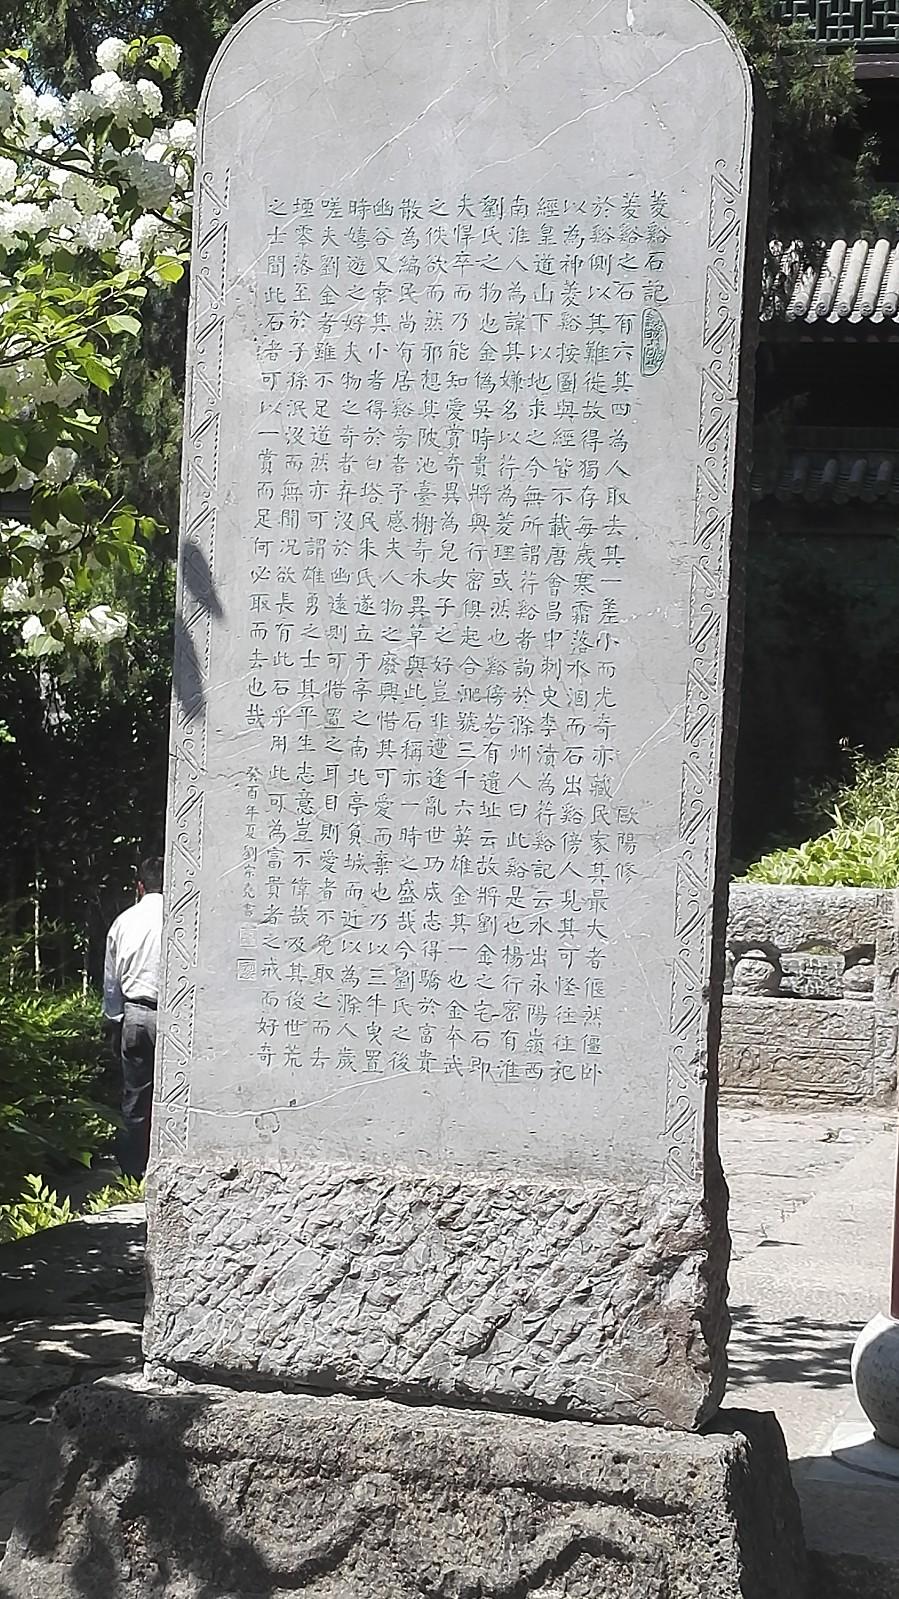 菱谿石記
歐陽修
菱谿之石有六其四為人取去其一差小而尤奇亦藏民家其最大者偃然僵卧
於谿側以其難徙故得獨存每歲寒霜落水涸而石出谿傍人見其可怪往往祀
以為神菱谿按圖與經皆不載唐會昌中刺史李濆為荇谿記云水出永陽嶺西
經皇道山下以地求之今無所謂荇谿者詢於滁州人曰此谿是也楊行密有淮
南淮人為諱其嫌名以荇為菱理或然也谿傍若有遺址云故將劉金之宅石即
劉氏之物也金偽吳時貴將與行密俱起合淝號三十六英雄金其一也金本武
夫悍卒而乃能知愛賞奇異為兒女子之好豈非遭逢亂世功成志得驕於富貴
之佚欲而然邪想其陂池臺榭奇木異草與此石稱亦一時之盛哉今劉氏之後
散為編民尚有居谿旁者予感夫人物之廢興惜其可愛而棄也乃以三牛曳置
幽谷又索其小者得於白塔民朱氏遂立于亭之南北亭負城而近以為滁人歲
時嬉遊之好夫物之奇者弃沒於幽遠則可惜置之耳目則愛者不免取之而去
嗟夫劉金者雖不足道然亦可謂雄勇之士其平生志意豈不偉哉及其後世荒
堙零落至於子孫泯沒而無聞況欲長有此石乎用此可為富貴者之戒而好奇
之士聞此石者可以一賞而足何必取而去也哉
癸酉年夏劉